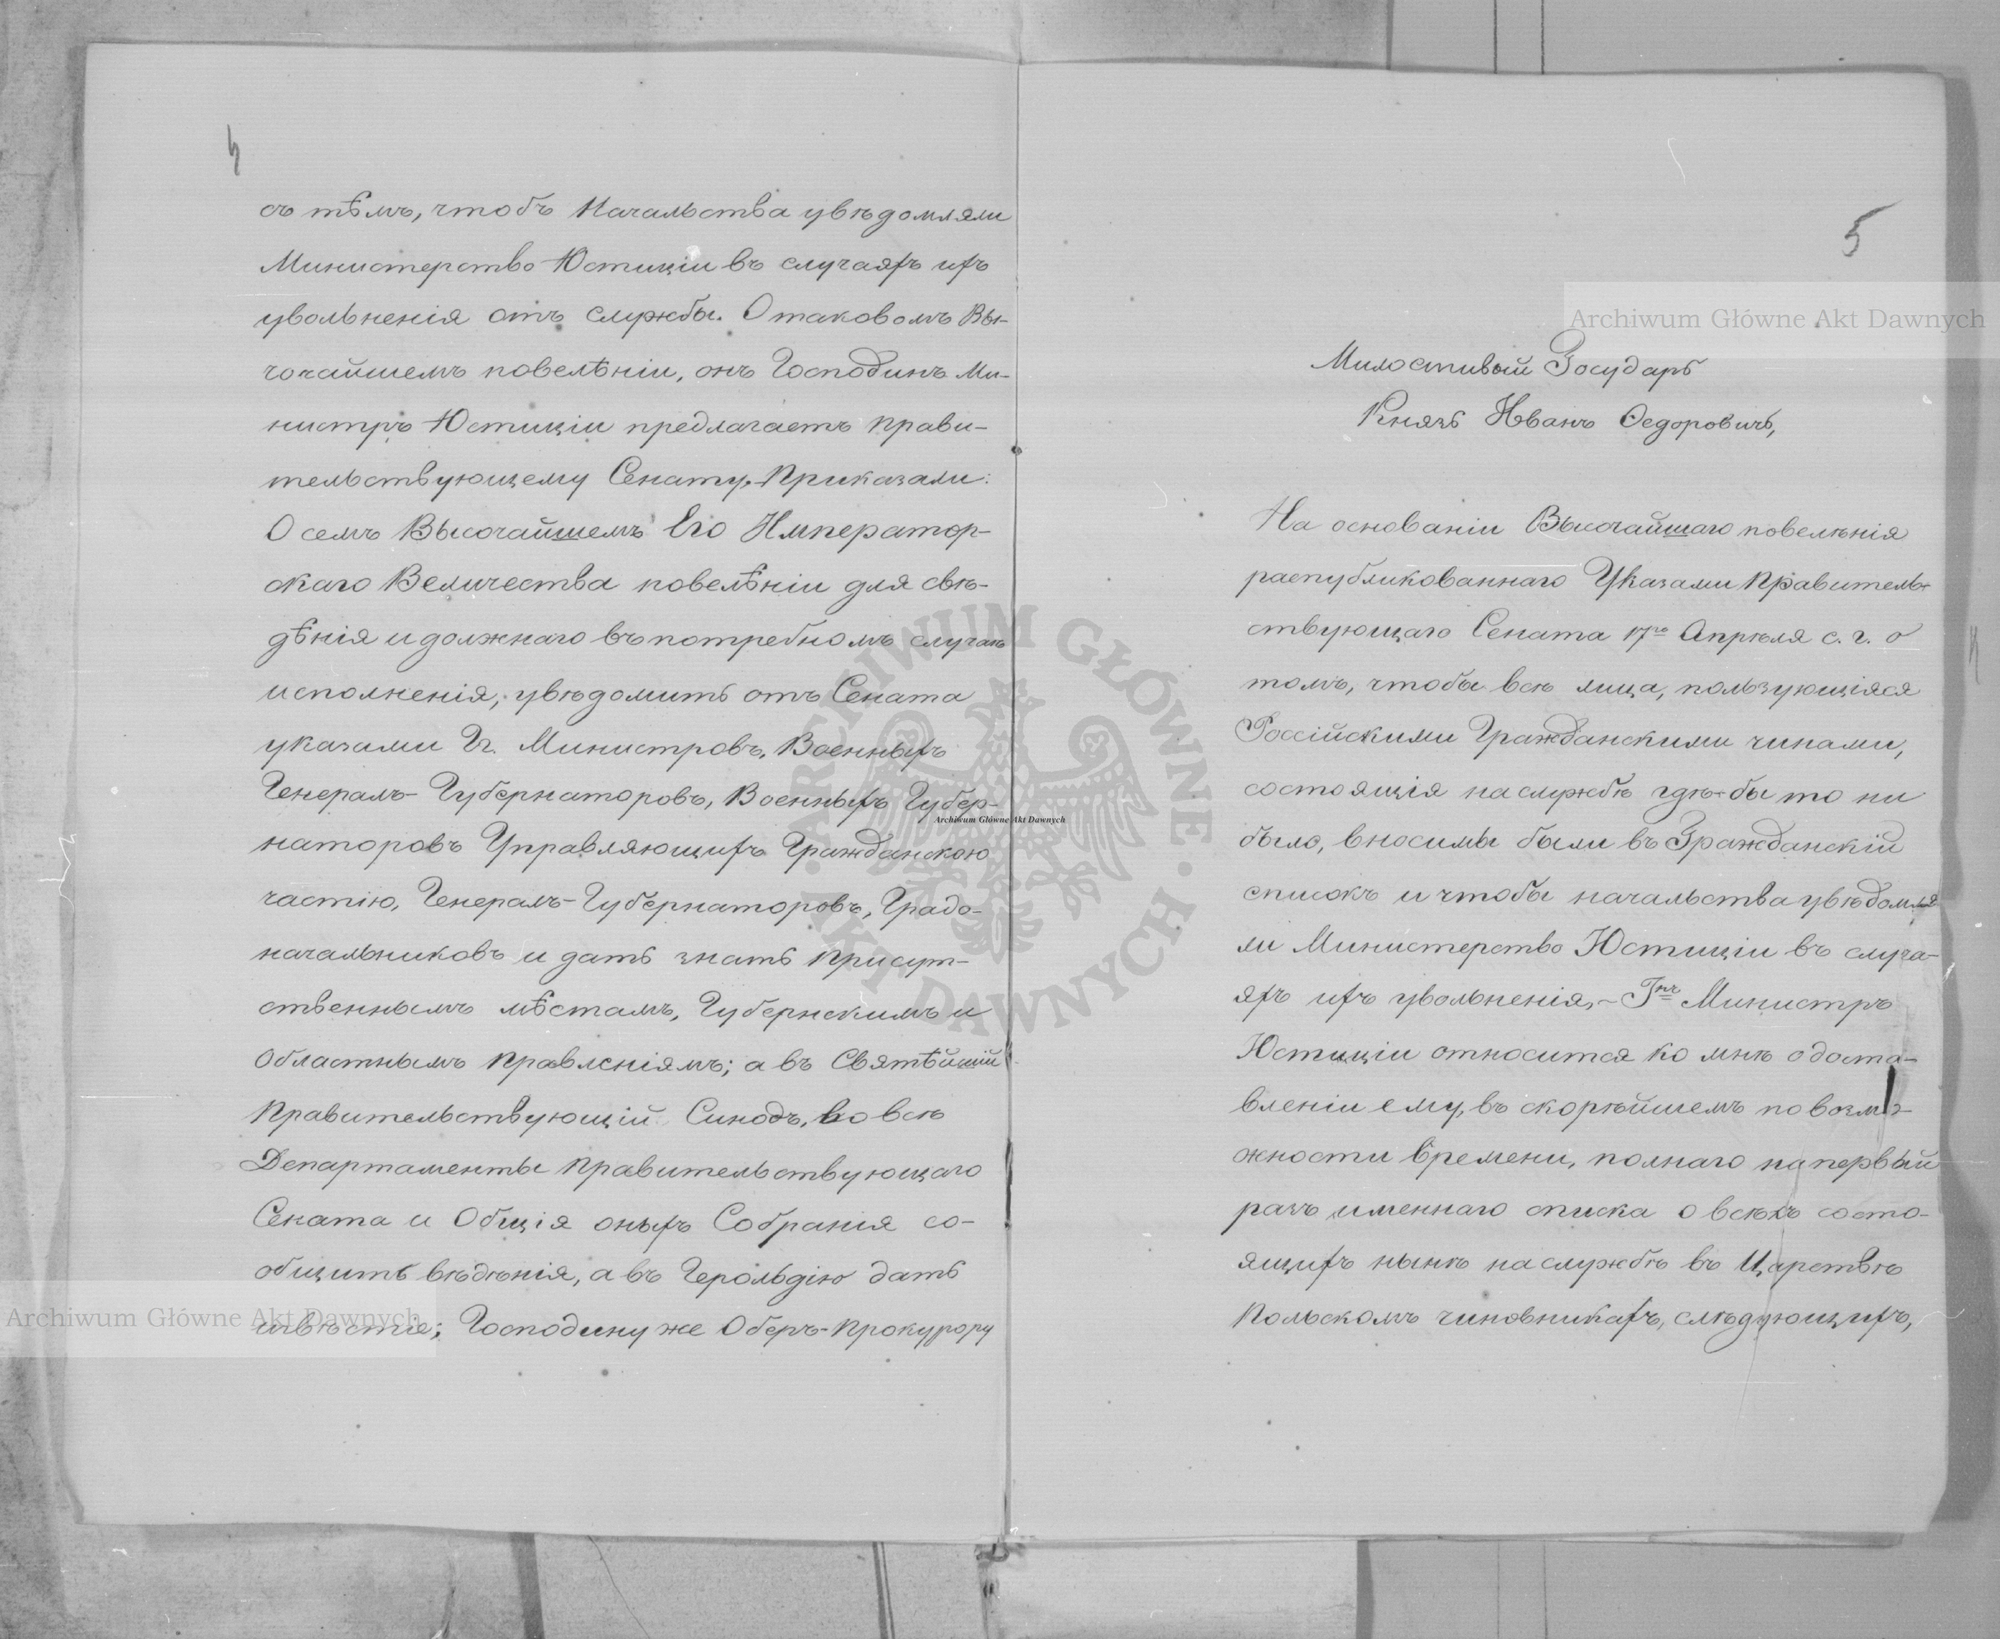 4
съ тѣмъ, чтобъ Начальства увѣдомляли
Министерство Юстиціи въ случаяхъ ихъ
увольненія отъ службы. О таковомъ Вы-
сочайшемъ повелѣніи, онъ Господинъ Ми-
нистръ Юстиціи предлагаетъ Прави-
тельствующему Сенату, Приказали:
О семъ Высочайшемъ Его Император-
скаго Величества повелѣніи для свѣ-
дѣнія и должнаго въ потребномъ случаѣ
исполненія, увѣдомить отъ Сената
указами Гг. Министровъ, Военныхъ
Генералъ-Губернаторовъ, Военныхъ Губер-
наторовъ Управляющихъ Гражданскою
частію, Генералъ-Губернаторовъ, Градо-
начальниковъ и дать знать Присут-
ственнымъ мѣстамъ, Губернскимъ и
Областнымъ Правленіямъ; а въ Святѣйшій
Правительствующій Синодъ, во всѣ
Департаменты Правительствующаго
Сената и Общія оныхъ Собранія со-
общить вѣдѣнія, а въ Герольдію дать
извѣстіе; Господину же Оберъ-Прокурору
5
Милостивый Государь
Князь Иванъ Ѳедоровичъ,
На основаніи Высочайшаго повелѣнія
распубликованнаго Указами Правитель-
ствующаго Сената 17го Апрѣля с. г. о
томъ, чтобы всѣ лица, пользующіяся
Россійскими Гражданскими чинами,
состоящія на службѣ гдѣ-бы то ни
было, вносимы были въ Гражданскій
списокъ и чтобы начальства увѣдомля-
ли Министерство Юстиціи въ случа-
яхъ ихъ увольненія, - Гнъ Министръ
Юстиціи относится ко мнѣ о доста-
вленіи ему, въ скорѣйшемъ по возмо-
жности времени, полнаго на первый
разъ именнаго списка о всѣхъ состо-
ящихъ нынѣ на службѣ въ Царствѣ
Польскомъ чиновникахъ, слѣдующихъ,
Archiwum Główne Akt Dawnych
Archiwum Główne Akt Dawnych
Archiwum Główne Akt Dawnych
ARCHIWUM GŁÓWNE · AKT DAWNYCH ·